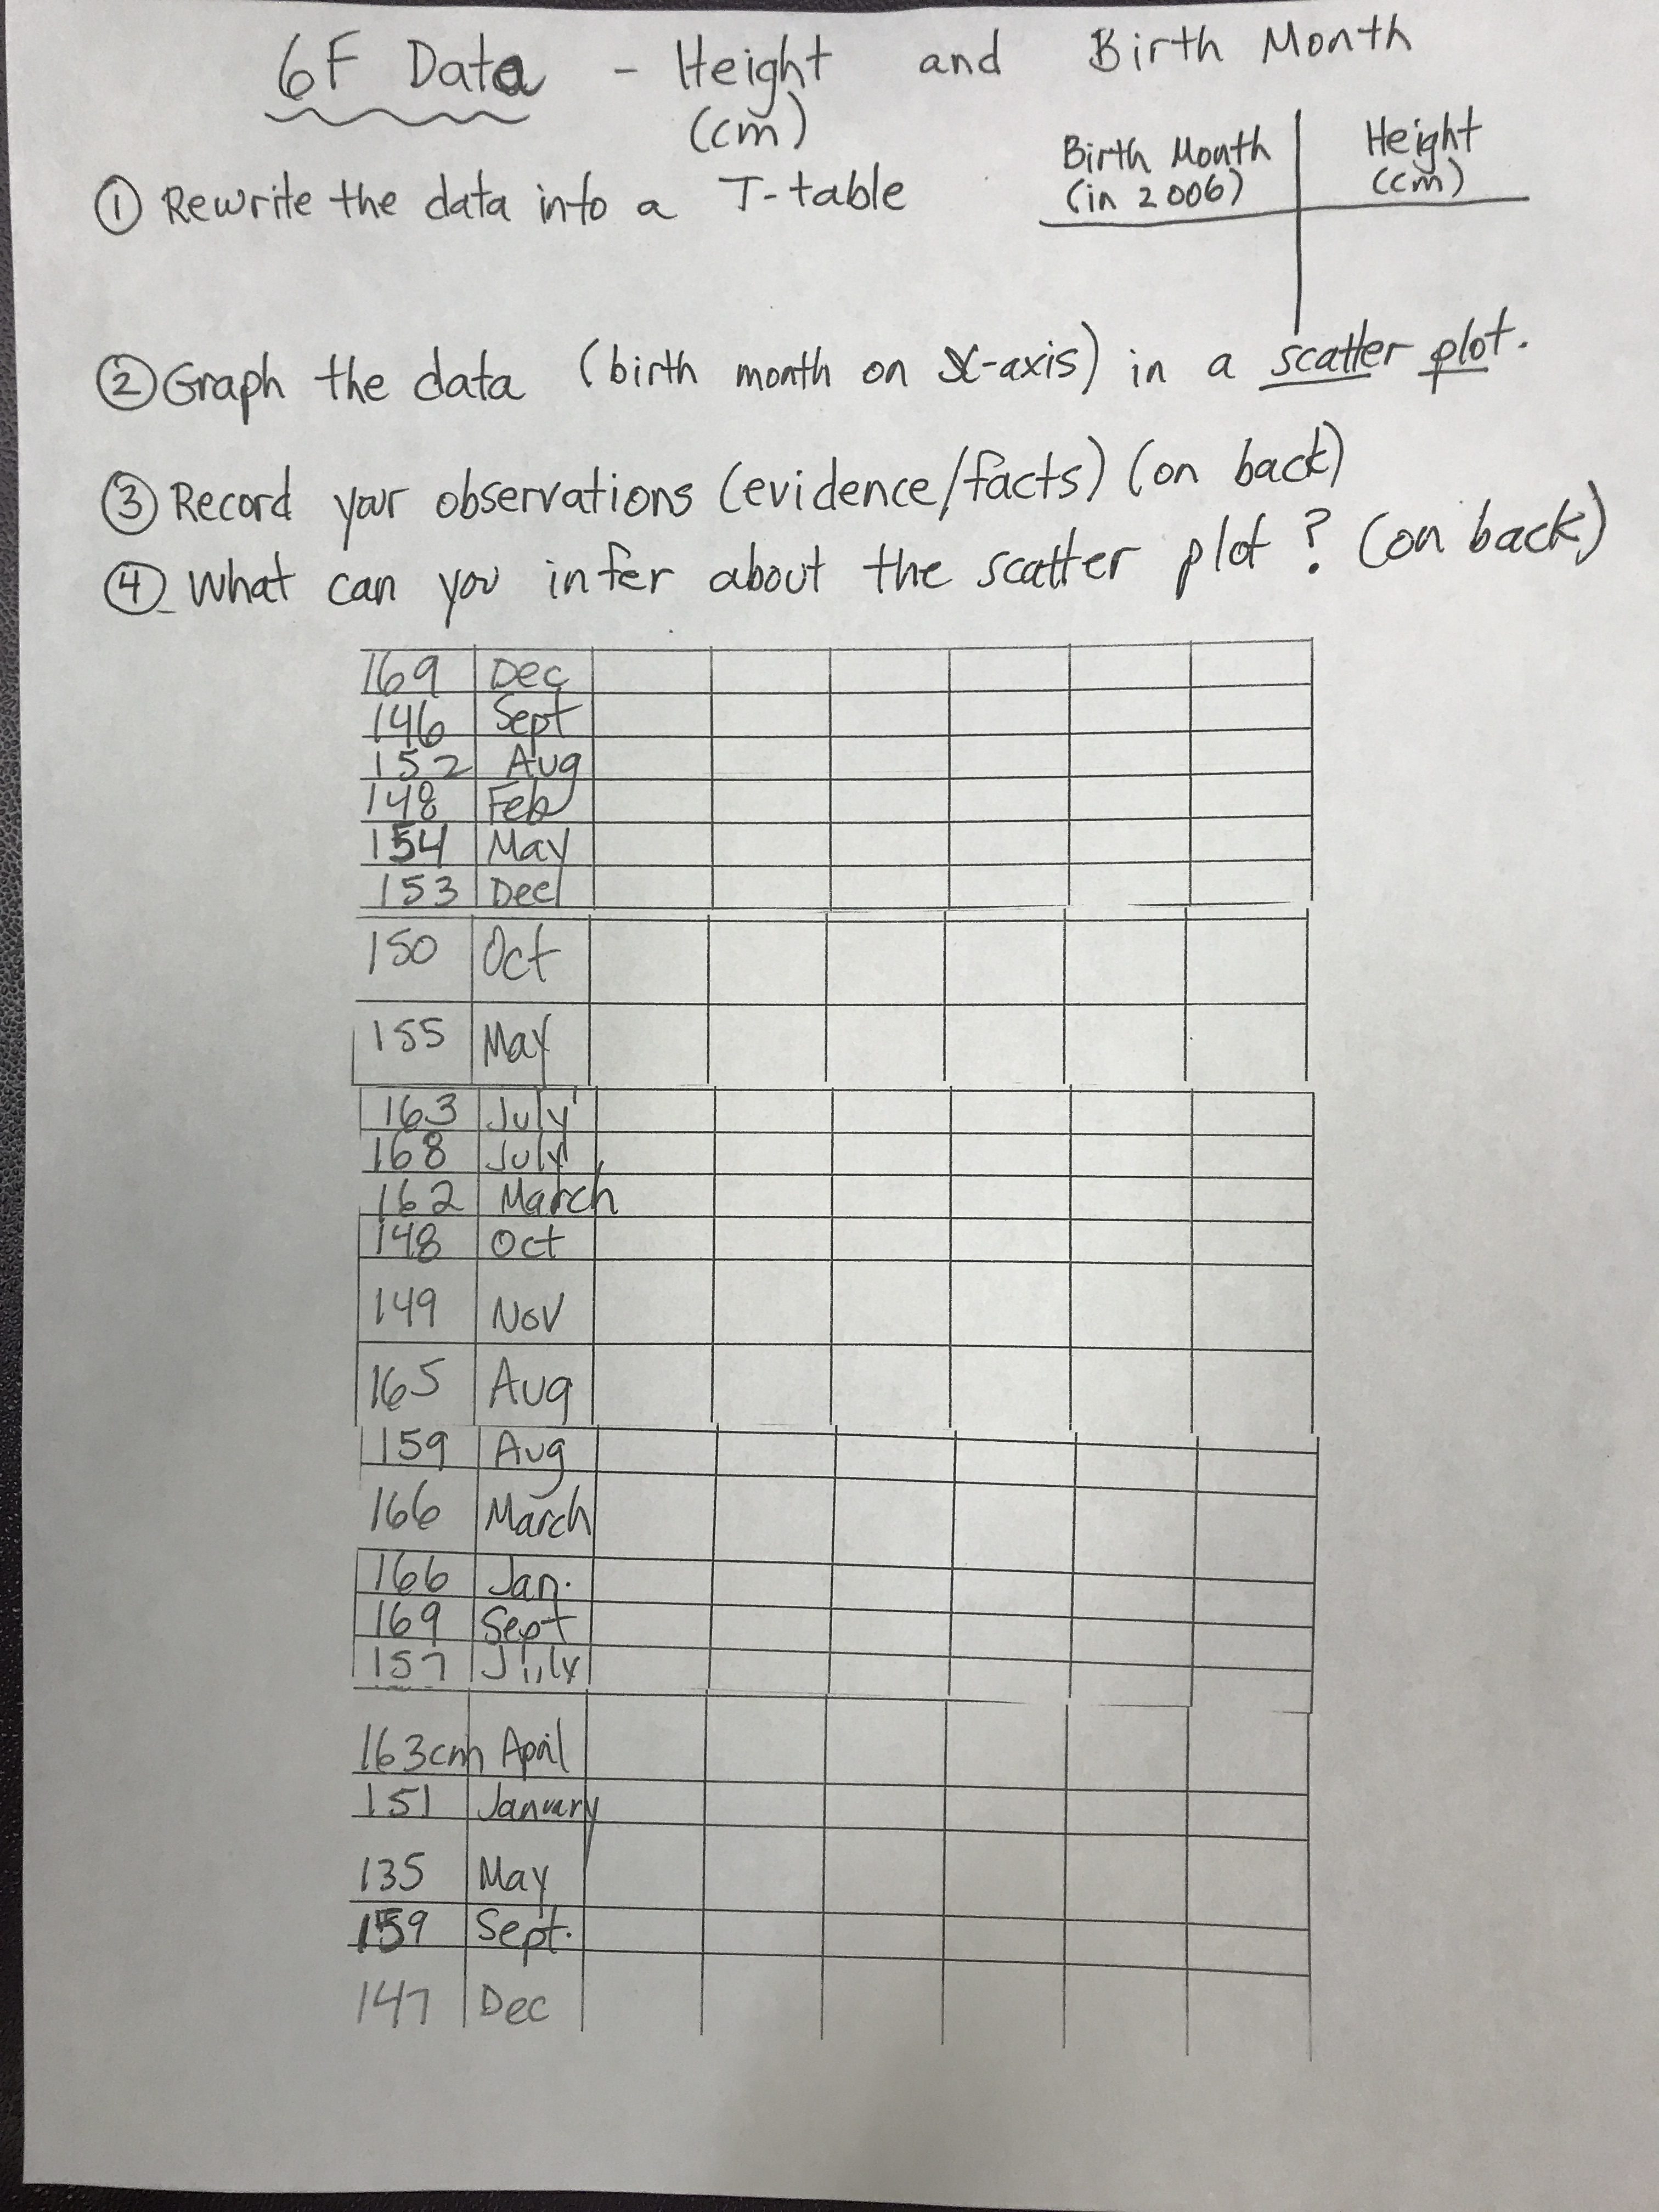 6F Data - Height and Birth Month
(cm)
① Rewrite the data into a T-table
Birth Month (in 2006) Height (cm)
② Graph the data (birth month on x-axis) in a scatter plot.
③ Record your observations (evidence/facts) (on back)
④ What can you infer about the scatter plot? (on back)
169 Dec
146 Sept
152 Aug
148 Feb
154 May
153 Dec
150 Oct
155 May
163 July
168 July
162 March
148 Oct
149 Nov
165 Aug
159 Aug
166 March
166 Jan.
169 Sept
157 July
163cm April
151 January
135 May
159 Sept.
147 Dec